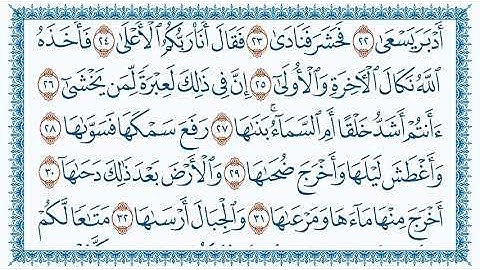 أَدْبَرَ يَسْعَىٰ ٢٢ فَحَشَرَ فَنَادَىٰ ٢٣ فَقَالَ أَنَا۠ رَبُّكُمُ ٱلْأَعْلَىٰ ٢٤ فَأَخَذَهُ
ٱللَّهُ نَكَالَ ٱلْـَٔاخِرَةِ وَٱلْأُولَىٰٓ ٢٥ إِنَّ فِى ذَٰلِكَ لَعِبْرَةً لِّمَن يَخْشَىٰٓ ٢٦
ءَأَنتُمْ أَشَدُّ خَلْقًا أَمِ ٱلسَّمَآءُ ۚ بَنَىٰهَا ٢٧ رَفَعَ سَمْكَهَا فَسَوَّىٰهَا ٢٨
وَأَغْطَشَ لَيْلَهَا وَأَخْرَجَ ضُحَىٰهَا ٢٩ وَٱلْأَرْضَ بَعْدَ ذَٰلِكَ دَحَىٰهَآ ٣٠
أَخْرَجَ مِنْهَا مَآءَهَا وَمَرْعَىٰهَا ٣١ وَٱلْجِبَالَ أَرْسَىٰهَا ٣٢ مَتَـٰعًا لَّكُمْ